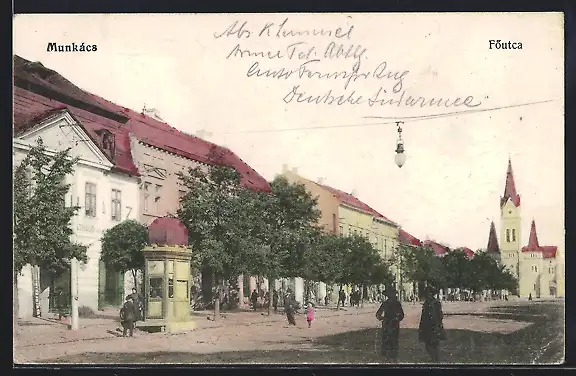 Munkács
Főutca
Abs Klemmel
Armee Tel. Abtlg.
Auto Fernspr Zug
Deutsche Südarmee